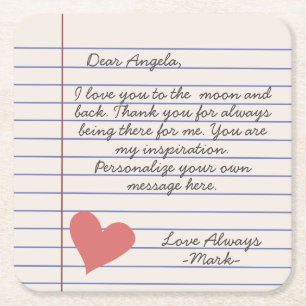 Dear Angela,
I love you to the moon and
back. Thank you for always
being there for me. You are
my inspiration.
Personalize your own
message here.
Love Always
-Mark-